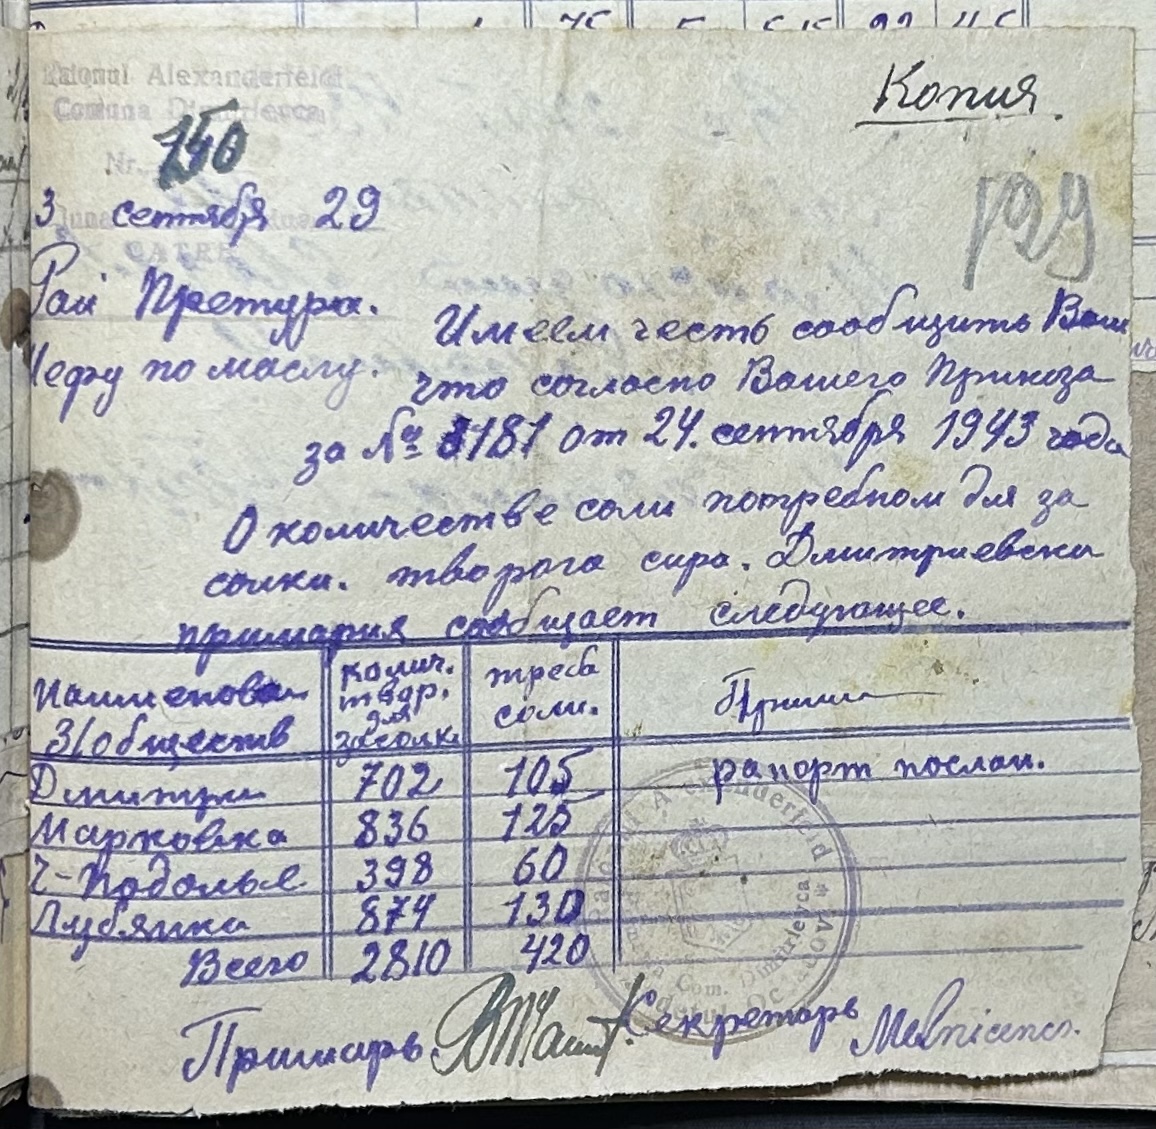 Raionul Alexanderfeld
Comuna Dimitrievca
Копия.
Nr.
150
3 сентября 29
129
CATRE
Рай Претура.
Шефу по маслу.
Имеем честь сообщить Вам
что согласно Вашего Приказа
за № 1181 от 24. сентября 1943 года
О количестве соли потребном для за
солки. творога сира. Дмитриевска
примария сообщает следующее.
Наименован З/обществ
колич. твор. для засолк.
треба соли.
Прим
Дмитри 702 105 рапорт послан.
Марковка 836 125
Ч-Подолье 398 60
Лубянка 874 130
Всего 2810 420
Raionul Alexanderfeld
Com. Dimitrievca
Примарь Секретарь Melnicenco.